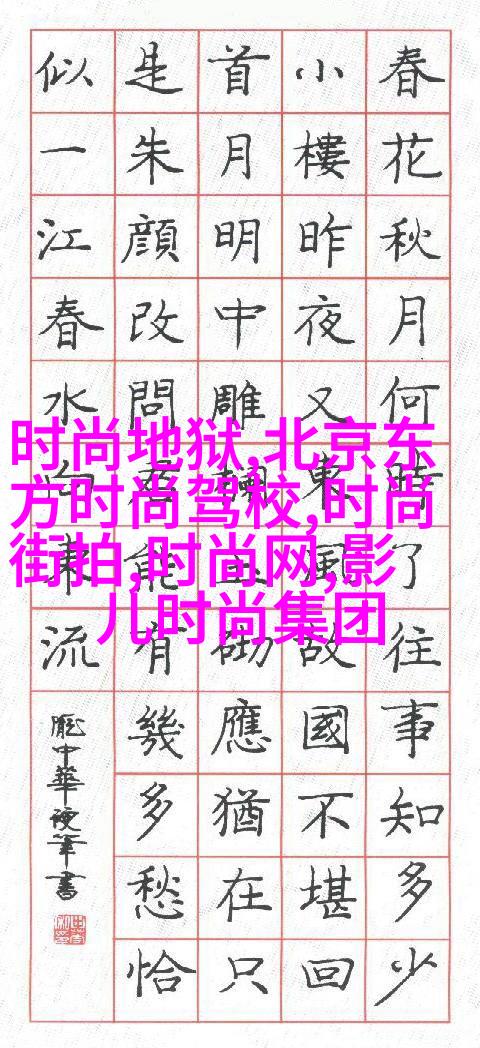 春花秋月何時了往事知多少
小樓昨夜又東風故國不堪回
首月明中雕玉砌應猶在只
是朱顔改問君能有幾多愁恰
似一江春水向東流
龐中華硬筆書
时尚地狱,北京东
方时尚驾校,时尚
街拍,时尚网,影
儿时尚集团